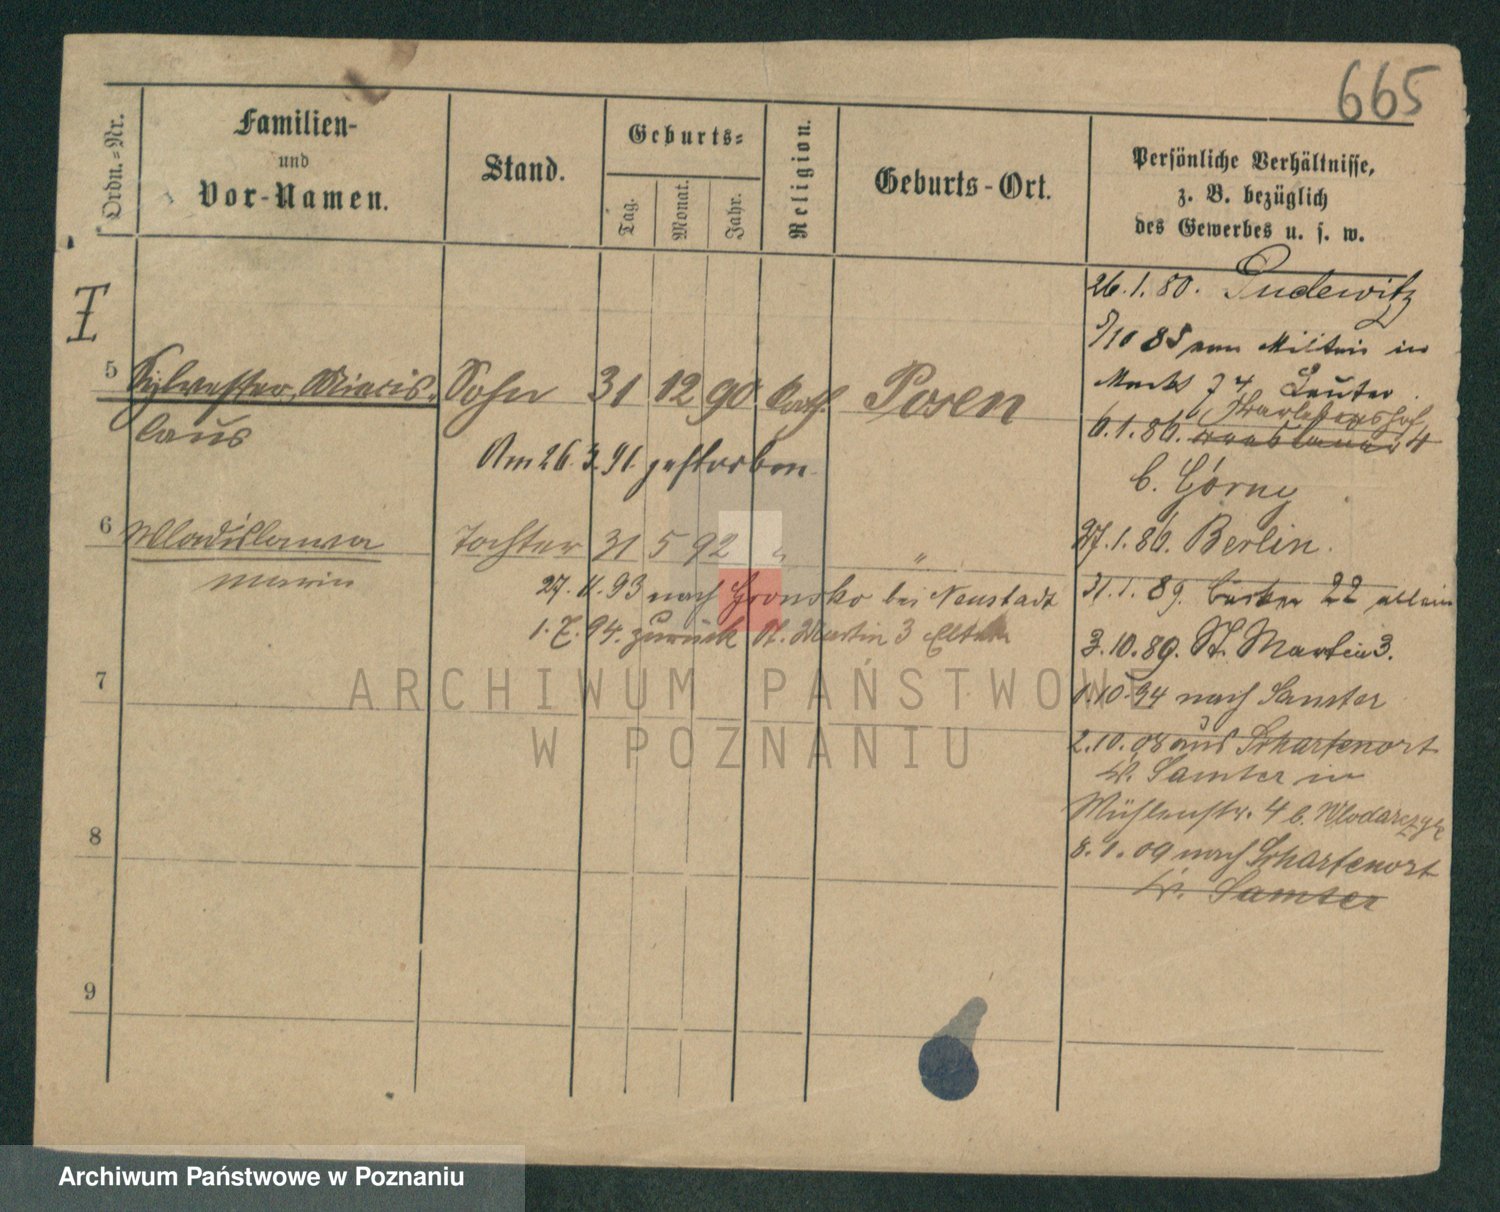 665
Ordn.-Nr.
Familien-
und
Vor-Namen.
Stand.
Geburts-
Tag.
Monat.
Jahr.
Religion.
Geburts-Ort.
Persönliche Verhältnisse,
z. B. bezüglich
des Gewerbes u. s. w.
I
5
Sylvester, Miecis-
laus
Sohn 31 12 90 kath. Posen
Am 26.3.91. gestorben.
6
Wladislawa
Maria
Tochter 31 5 92 " "
27. 93 nach Gronsko bei Neustadt
1. 7. 94. zurück St. Martin 3 Eltern
7
8
9
26.1.80. Pudewitz
5/10 85 vom Militair in
Markt 74 Lauter
6.1.86. 4
b. Górny
27.1.86. Berlin.
31.1.89. 22 allein
3.10.89. St. Martin 3.
1.10.94 nach Samter
2.10.08 aus Scharfenort
Kr. Samter in
Mühlenstr. 4 b. Wlodarczyk
8.1.09 nach Scharfenort
Kr. Samter
ARCHIWUM PAŃSTWOWE
W POZNANIU
Archiwum Państwowe w Poznaniu